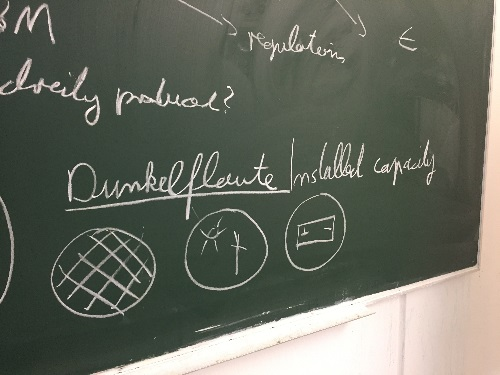 M
regulations €
produce?
Dunkelflaute Installed capacity
+ -